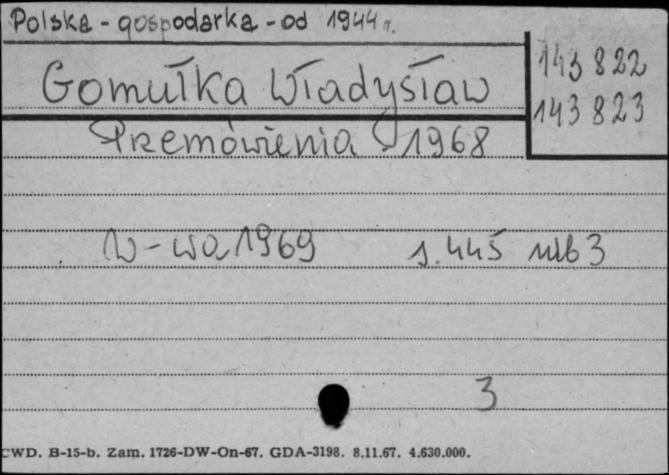 Polska - gospodarka - od 1944 r.
143 822
Gomułka Władysław
143 823
Przemówienia 1968
W-wa 1969 s. 445 nlb 3
3
CWD. B-15-b. Zam. 1726-DW-On-67. GDA-3198. 8.11.67. 4.630.000.